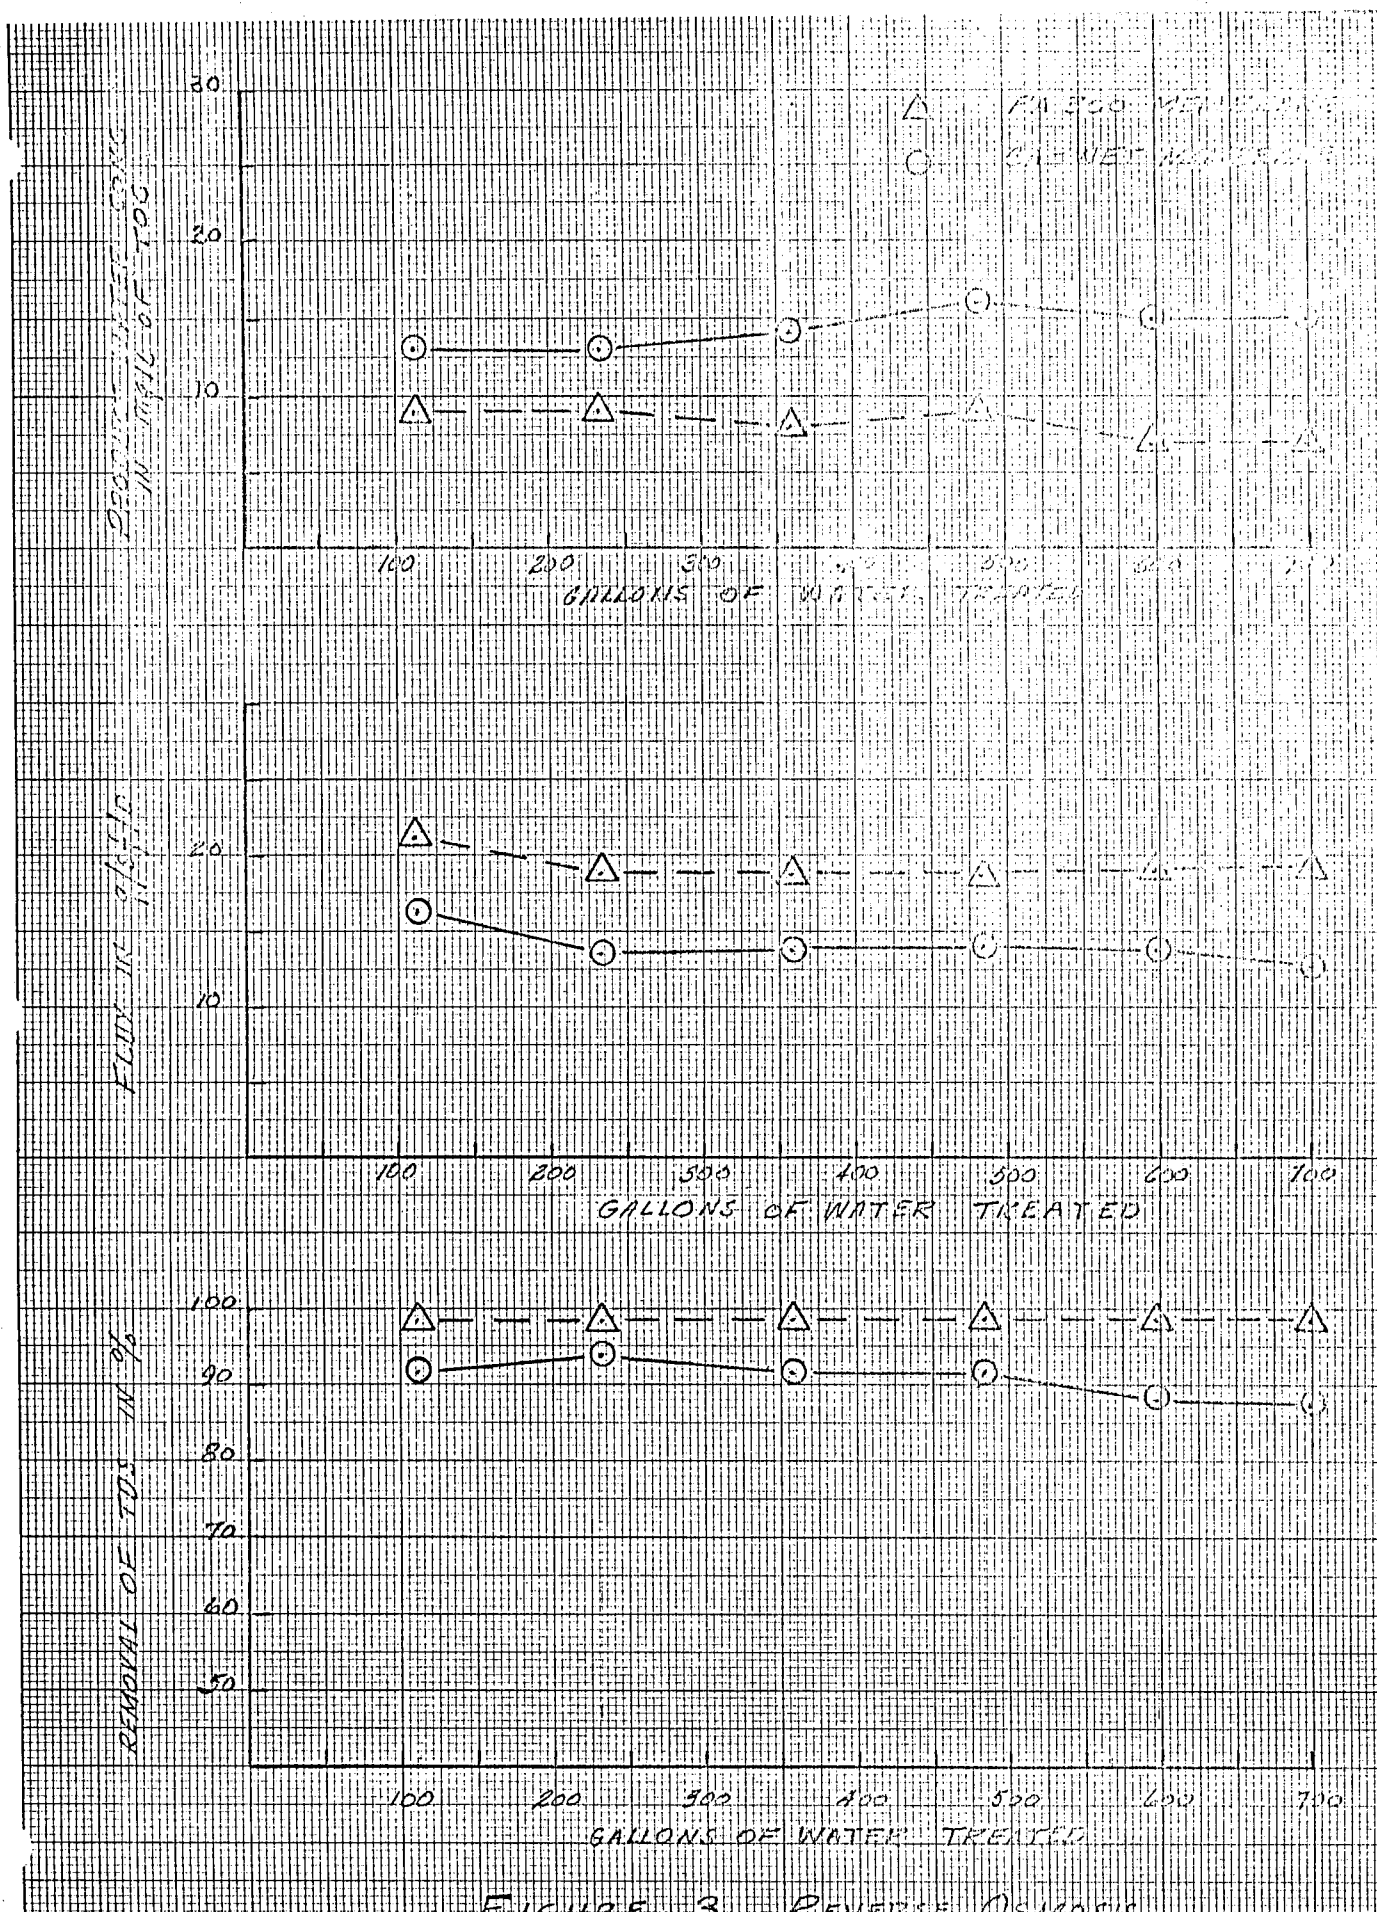 30
20
10
IN mg/L OF TOC
100 200 300 400 500 600 700
GALLONS OF WATER TREATED
FLUX IN
20
10
100 200 300 400 500 600 700
GALLONS OF WATER TREATED
REMOVAL OF TDS IN %
100
90
80
70
60
50
100 200 300 400 500 600 700
GALLONS OF WATER TREATED
FIGURE 3 REVERSE OSMOSIS